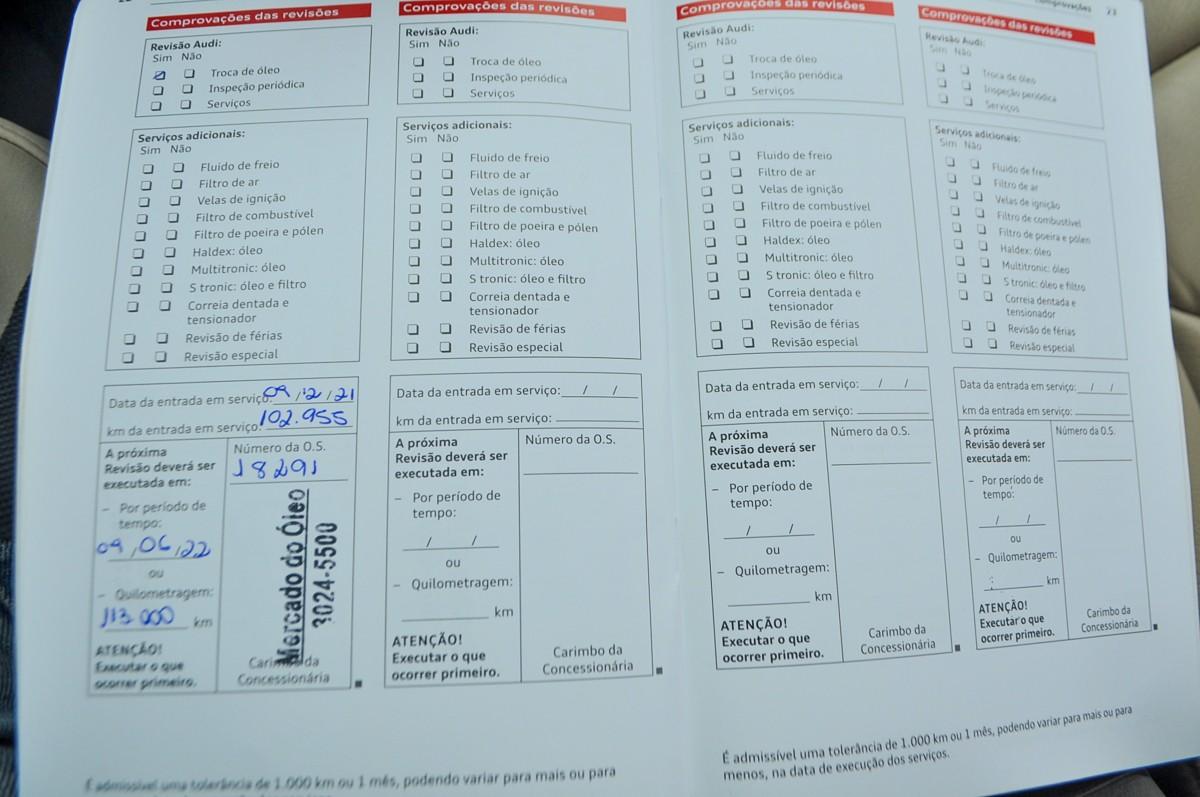 Comprovações das revisões
Revisão Audi:
Sim Não
Troca de óleo
Inspeção periódica
Serviços
Serviços adicionais:
Sim Não
Fluido de freio
Filtro de ar
Velas de ignição
Filtro de combustível
Filtro de poeira e pólen
Haldex: óleo
Multitronic: óleo
S tronic: óleo e filtro
Correia dentada e
tensionador
Revisão de férias
Revisão especial
Data da entrada em serviço: 09/12/21
km da entrada em serviço: 102.955
A próxima
Revisão deverá ser
executada em:
– Por período de
tempo:
09/06/22
ou
– Quilometragem:
113 000 km
ATENÇÃO!
Executar o que
ocorrer primeiro.
Número da O.S.
18291
Mercado do Óleo
3024-5500
Carimbo da
Concessionária
Comprovações das revisões
Revisão Audi:
Sim Não
Troca de óleo
Inspeção periódica
Serviços
Serviços adicionais:
Sim Não
Fluido de freio
Filtro de ar
Velas de ignição
Filtro de combustível
Filtro de poeira e pólen
Haldex: óleo
Multitronic: óleo
S tronic: óleo e filtro
Correia dentada e
tensionador
Revisão de férias
Revisão especial
Data da entrada em serviço: / /
km da entrada em serviço:
A próxima
Revisão deverá ser
executada em:
– Por período de
tempo:
/ /
ou
– Quilometragem:
km
ATENÇÃO!
Executar o que
ocorrer primeiro.
Número da O.S.
Carimbo da
Concessionária
É admissível uma tolerância de 1.000 km ou 1 mês, podendo variar para mais ou para
Comprovações 23
Comprovações das revisões
Revisão Audi:
Sim Não
Troca de óleo
Inspeção periódica
Serviços
Serviços adicionais:
Sim Não
Fluido de freio
Filtro de ar
Velas de ignição
Filtro de combustível
Filtro de poeira e pólen
Haldex: óleo
Multitronic: óleo
S tronic: óleo e filtro
Correia dentada e
tensionador
Revisão de férias
Revisão especial
Data da entrada em serviço: / /
km da entrada em serviço:
A próxima
Revisão deverá ser
executada em:
– Por período de
tempo:
/ /
ou
– Quilometragem:
km
ATENÇÃO!
Executar o que
ocorrer primeiro.
Número da O.S.
Carimbo da
Concessionária
Comprovações das revisões
Revisão Audi:
Sim Não
Troca de óleo
Inspeção periódica
Serviços
Serviços adicionais:
Sim Não
Fluido de freio
Filtro de ar
Velas de ignição
Filtro de combustível
Filtro de poeira e pólen
Haldex: óleo
Multitronic: óleo
S tronic: óleo e filtro
Correia dentada e
tensionador
Revisão de férias
Revisão especial
Data da entrada em serviço: / /
km da entrada em serviço:
A próxima
Revisão deverá ser
executada em:
– Por período de
tempo:
/ /
ou
– Quilometragem:
km
ATENÇÃO!
Executar o que
ocorrer primeiro.
Número da O.S.
Carimbo da
Concessionária
É admissível uma tolerância de 1.000 km ou 1 mês, podendo variar para mais ou para
menos, na data de execução dos serviços.